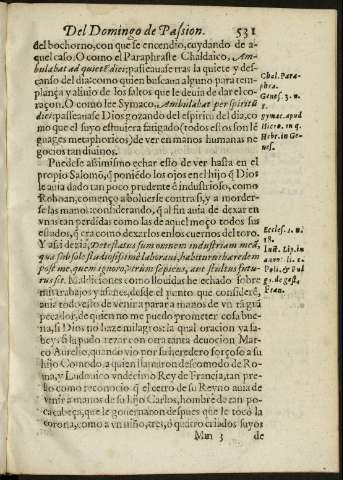 Del Domingo de Passion. 531
del bochorno, con que se encendio, cuydando de a-
quel caso. O como el Paraphraste Chaldaico, Am-
bulabat ad quietē diei; passeauase tras la quiete y des-
canso del dia: como quien buscaua alguno para tem-
plança y aliuio de los saltos que le deuia de dar el co-
raçon. O como lee Symaco, Ambulabat per spiritū
diei: passeauase Dios gozando del espiritu del dia, co
mo que el suyo estuuiera fatigado (todos estos son lē
guages metaphoricos) de ver en manos humanas ne
gocios tan diuinos.
Chal. Para-
phra.
Genes. 3. n.
8.
Symac. apud
Hiero. in q.
Hebr. in Ge-
nes.
Puedese assimismo echar esto de ver hasta en el
propio Salomō, q̄ poniēdo los ojos en el hijo q̄ Dios
le auia dado tan poco prudente ò industrioso, como
Roboan, començo a boluerse contra si, y a morder-
se las manos: considerando, q̄ al fin auia de dexar en
vnas tan perdidas como las de aquel moço todos sus
estados, q̄ era como dexarlos en los cuernos del toro.
Y assi dezia, Detestatus sum omnem industriam meā,
qua sub sole studiosissimè laboraui, habiturus hæredem
post me, quem ignoro, vtrùm sapiens, aut stultus futu-
rus sit. Maldiciones como llouidas he echado sobre
mis trabajos y afanes, desde el punto que considerè,
auia todo esto de venir a parar a manos de vn rāgrā
pecador, de quien no me puedo prometer cosa bue-
na, si Dios no haze milagros: la qual oracion ya sa-
beys si la pudo rezar con otra tanta deuocion Mar-
co Aurelio, quando vio por su heredero forçoso a su
hijo Comodo, a quien llamaron descomodo de Ro-
ma, y Ludouico vndècimo Rey de Francia, tan pre-
sto como reconocio q̄ el cetro de su Reyno auia de
venir a manos de su hijo Carlos, hombre de tan po-
ca cabeça, que le gouernaron despues que le tocò la
corona, como a vn niño, tres, ò quatro criados suyos
Eccles. 2. n.
18.
Mm 3 de